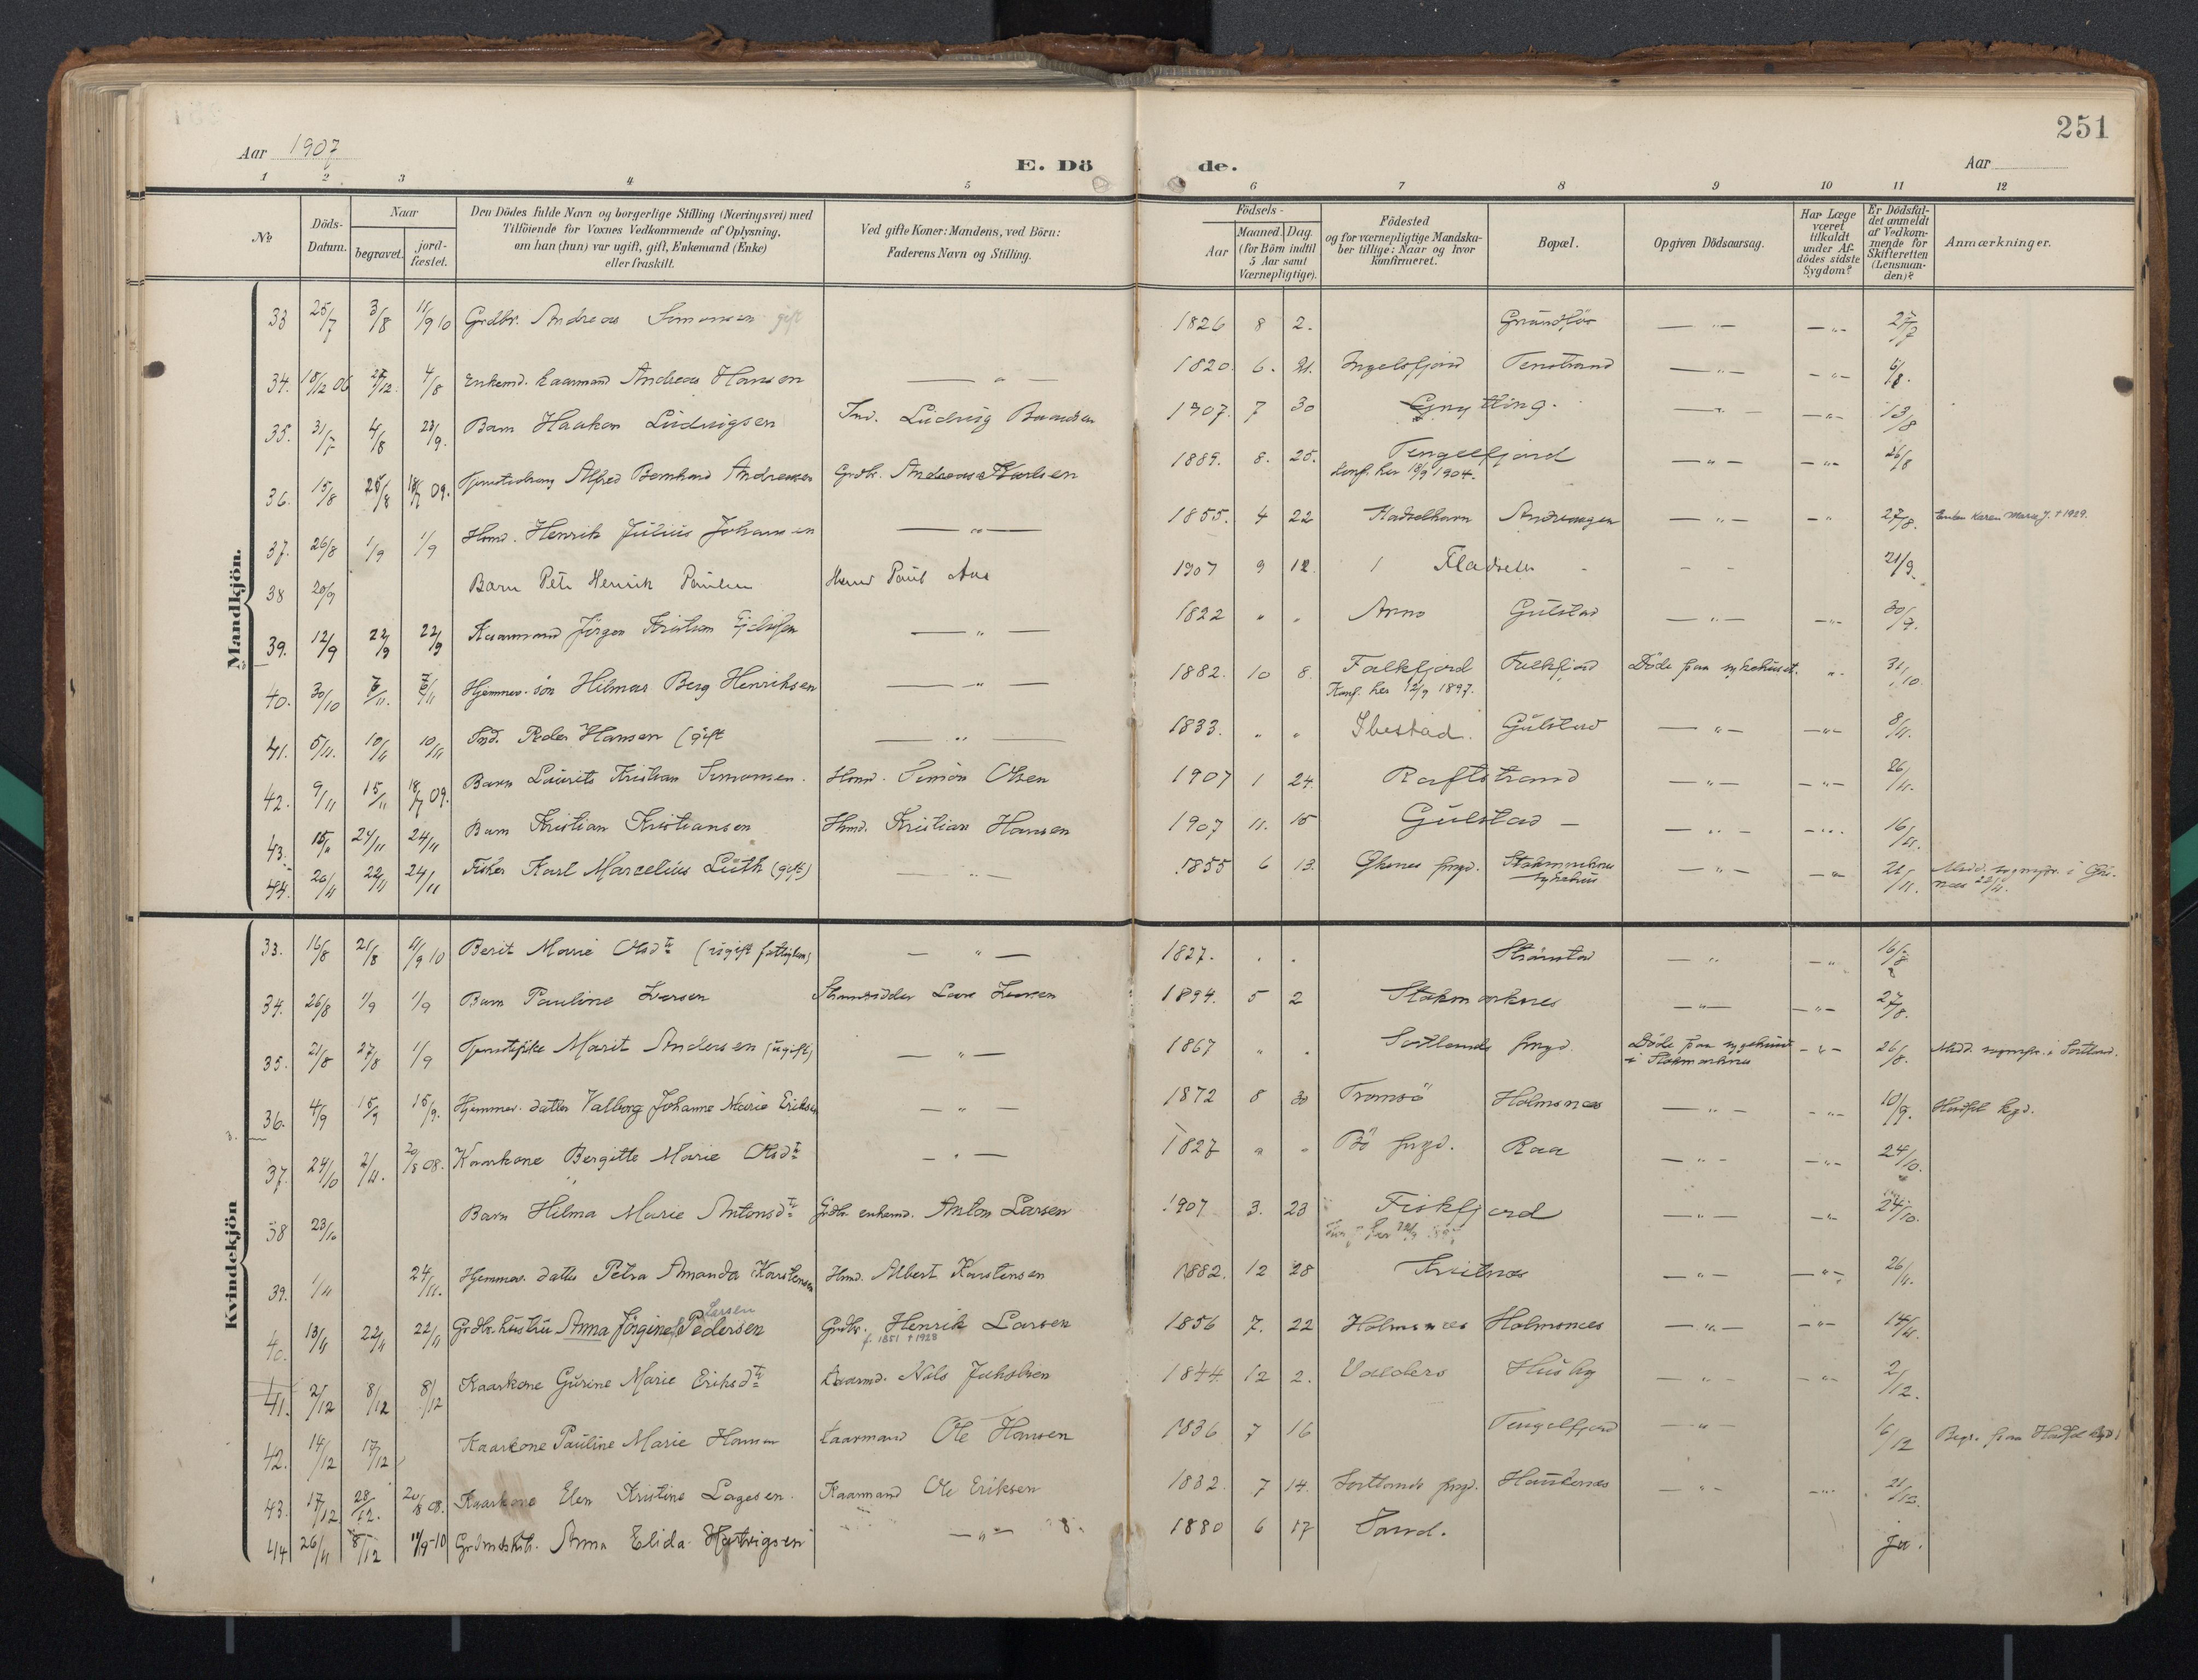 251
Aar 1907
E. Dö de.
Aar
1 2 3 4 5 6 7 8 9 10 11 12
№
Döds-Datum.
Naar
begravet. jord-fæstet.
Den Dödes fulde Navn og borgerlige Stilling (Næringsvei) med
Tilföiende for Voxnes Vedkommende af Oplysning,
om han (hun) var ugift, gift, Enkemand (Enke)
eller fraskilt.
Ved gifte Koner: Mandens, ved Börn:
Faderens Navn og Stilling.
Födsels-
Aar
Maaned. Dag.
(for Börn indtil
5 Aar samt
Værnepligtige).
Födested
og for værnepligtige Mandska-
ber tillige: Naar og hvor
konfirmeret.
Bopæl.
Opgiven Dödsaarsag.
Har Læge
været
tilkaldt
under Af-
dödes sidste
Sygdom?
Er Dödsfal-
det anmeldt
af Vedkom-
mende for
Skifteretten
(Lensman-
den)?
Anmærkninger.
Mandkjön.
33 25/7 3/8 11/9 10 Grdbr. Andreas Simonsen gift 1826 8 2. — " — — " — 27/7
34. 18/12 06 27/12. 4/8 Enkemd. kaarmand Andreas Hansen — " — 1820. 6. 21. Ingelsfjord Tenstrand — " — — " — 6/8.
35. 31/7 4/8 23/9. Barn Haakon Ludvigsen Ind. Ludvig 1907. 7 30 — " — — " — 13/8
36. 15/8 25/8 18/7 09. Alfred Bernhard Andreassen Grdbr. Andreas Karlsen 1889. 8. 25. Tengelfjord — " — — " — 26/8
Konf. her 18/9 1904.
37. 26/8 1/9 1/9 Hmd. Henrik Julius Johansen — " — 1855. 4 22 Hadselhavn — " — — " 27/8. Enken Karen Marie J. † 1929.
38 20/9 Barn Henrik Paul 1907 9 12. - - - 21/9.
39. 12/9 22/9 22/9 Kaarmand Jörgen Kristian 1822 " " Gulstad — " — — " — 30/9.
40. 30/10 Hjemmev. sön Hilmar Berg Henriksen — " — 1882. 10 8. Falkfjord Falkfjord Döde paa sykehuset. " 31/10.
Konf. her 12/9 1897.
41. 5/11. 10/11 10/11 Ind. Peder Hansen (gift — " — 1833. " " Ibestad. Gulstad — " — — " — 8/11.
42. 9/11 15/11 18/7 09. Barn Laurits Kristian Simonsen. Hmd. Simon Olsen 1907 1 24. Raftstrand — " — — " — 26/11.
43. 15/11 24/11 24/11 Barn Kristian Kristiansen Hmd. Kristian Hansen 1907 11. 15 Gulstad — — " — — " — 16/11.
44. 20/11 22/11 24/11 Fisker Karl Marcelius Lüth (gift) — " — 1855 6 13. Öksnes prgd. Stokmarknes — " — — " 21/11.
sykehus
Kvindekjön
33. 16/8 21/8 11/9 10 Berit Marie Olsdtr (ugift — " — 1827. " " — " — " 16/8
34. 26/8 1/9 1/9 Barn Pauline Larsen Lars Larsen 1894. 5 2 Stokmarknes — " — — " — 27/8.
35. 21/8 27/8 1/9 Marit Andersen (ugift) — " — 1867 " " Sortlands prgd. Döde paa sygehuset — " — 26/8.
i Stokmarknes
36. 4/9 15/9 15/9. Hjemmev. datter Valborg Johanne Marie Eriksen — " — 1872 8 30 Tromsö Holmsnes — " — — " — 10/9. Hadsel kgd.
37. 24/10 2/11. 20/8 08. Kaarkone Bergitte Marie Olsdtr — " — 1827 " " Bö prgd. Raa — " — — " — 24/10.
38 23/10 Barn Hilma Marie Antonsdtr Grdbr. enkemd. Anton Larsen 1907 3. 23 Fiskfjord — " — — " 24/10.
39. 1/11 24/11. Hjemmev. datter Petra Amanda Karstensen Hmd. Albert Karstensen 1882. 12 28 — " — — " — 26/11.
Larsen
40. 13/11 22/11 22/11 Grdbr. hustru Anna Jörgine Pedersen Grdbr. Henrik Larsen 1856 7. 22 Holmsnes Holmsnes — " — — " — 14/11.
f. 1851 † 1928
41. 2/12 8/12 8/12 Kaarkone Gurine Marie Eriksdtr Kaarmd. Nils Jakobsen 1844 12 2. Valders Husby — " — — " — 2/12.
42. 14/12 17/12 Kaarkone Pauline Marie Hansen kaarmand Ole Hansen 1836 7 16 Tengelfjord — " 16/12 Begr. paa Hadsel kgd.
43. 17/12 28/12. 20/8 08. Kaarkone Elen Kristine Lagesen. Kaarmand Ole Eriksen 1832. 7 14. Sortlands prgd. Haukenes — " — — " — 21/12.
44 26/11 8/12 11/9-10 Anna Elida Hartvigsen — " — 1880 6 17 Sand. Ja.